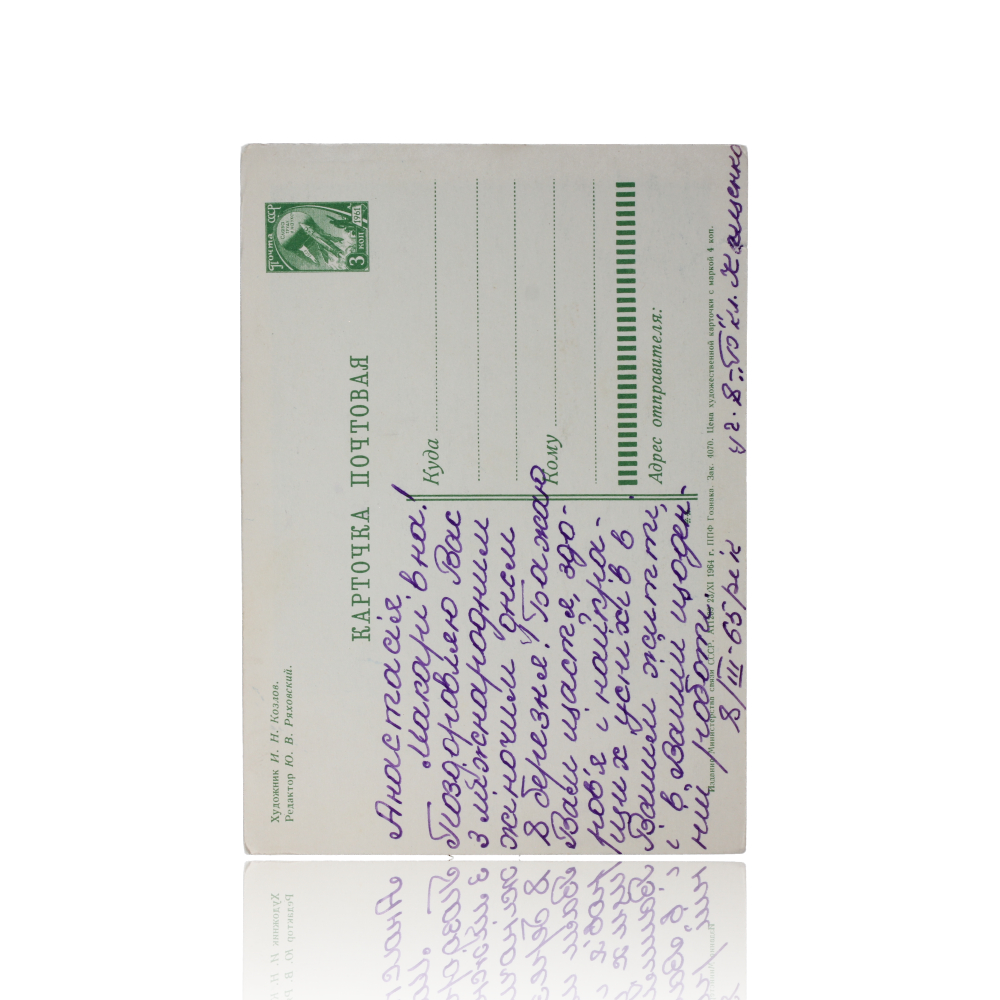 Художник И. Н. Козлов.
Редактор Ю. В. Ряховский.
КАРТОЧКА ПОЧТОВАЯ
Почта СССР
3 коп.
1961
Анастасія
Макарівна!
Поздоровляю Вас
з міжнародним
жіночим днем
8 березня! Бажаю
Вам щастя, здо-
ров'я і найкра-
щих успіхів в
Вашім житті,
і в Вашій щоден-
ній роботі.
8/III-65 рік
уг. 8-"Б" кл.
Куда
Кому
Адрес отправителя:
Издание Министерства связи СССР. 25/XI 1964 г. ППФ Гознака. Зак. 4070. Цена художественной карточки с маркой 4 коп.